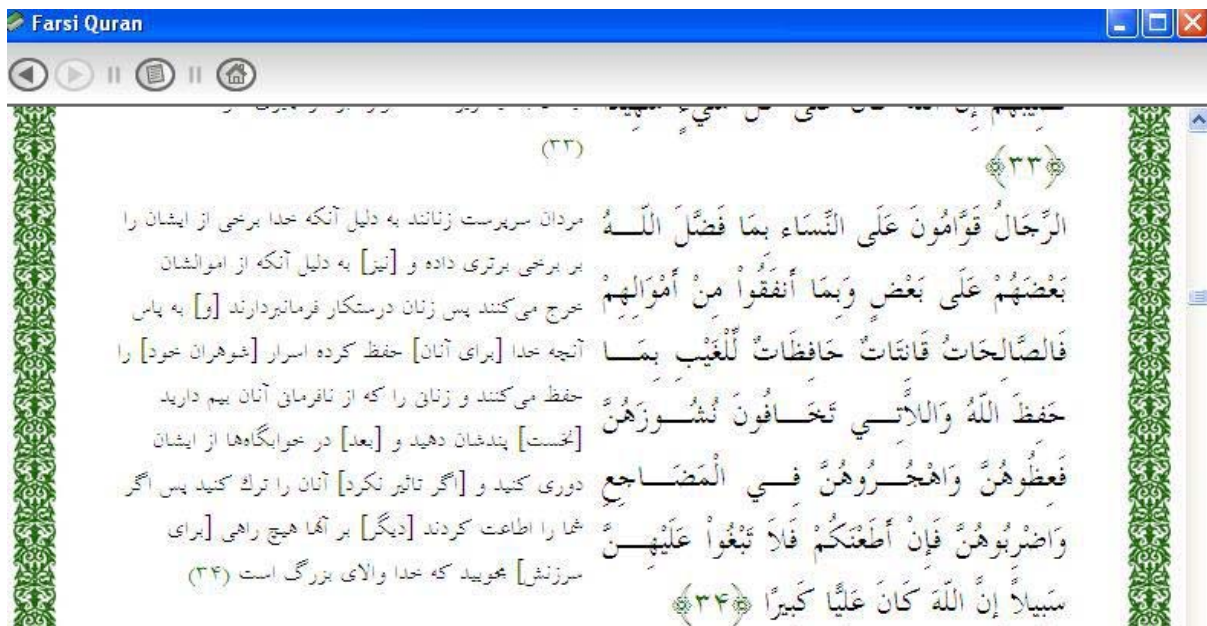 Farsi Quran
نَصِيبَهُمْ إِنَّ اللّهَ كَانَ عَلَى كُلِّ شَيْءٍ شَهِيدًا
﴿۳۳﴾
الرِّجَالُ قَوَّامُونَ عَلَى النِّسَاء بِمَا فَضَّلَ اللّـــهُ
بَعْضَهُمْ عَلَى بَعْضٍ وَبِمَا أَنفَقُواْ مِنْ أَمْوَالِهِمْ
فَالصَّالِحَاتُ قَانِتَاتٌ حَافِظَاتٌ لِّلْغَيْبِ بِمَـــا
حَفِظَ اللّهُ وَاللاَّتِـــي تَخَـــافُونَ نُشُـــوزَهُنَّ
فَعِظُوهُنَّ وَاهْجُـــرُوهُنَّ فِـــي الْمَضَـــاجِعِ
وَاضْرِبُوهُنَّ فَإِنْ أَطَعْنَكُمْ فَلاَ تَبْغُواْ عَلَيْهِـــنَّ
سَبِيلاً إِنَّ اللّهَ كَانَ عَلِيًّا كَبِيرًا ﴿۳۴﴾
(۳۳)
مردان سرپرست زنانند به دلیل آنکه خدا برخی از ایشان را
بر برخی برتری داده و [نیز] به دلیل آنکه از اموالشان
خرج می‌کنند پس زنان درستکار فرمانبردارند [و] به پاس
آنچه خدا [برای آنان] حفظ کرده اسرار [شوهران خود] را
حفظ می‌کنند و زنانی را که از نافرمانی آنان بیم دارید
[نخست] پندشان دهید و [بعد] در خوابگاه‌ها از ایشان
دوری کنید و [اگر تاثیر نکرد] آنان را ترك کنید پس اگر
شما را اطاعت کردند [دیگر] بر آنها هیچ راهی [برای
سرزنش] مجویید که خدا والای بزرگ است (۳۴)